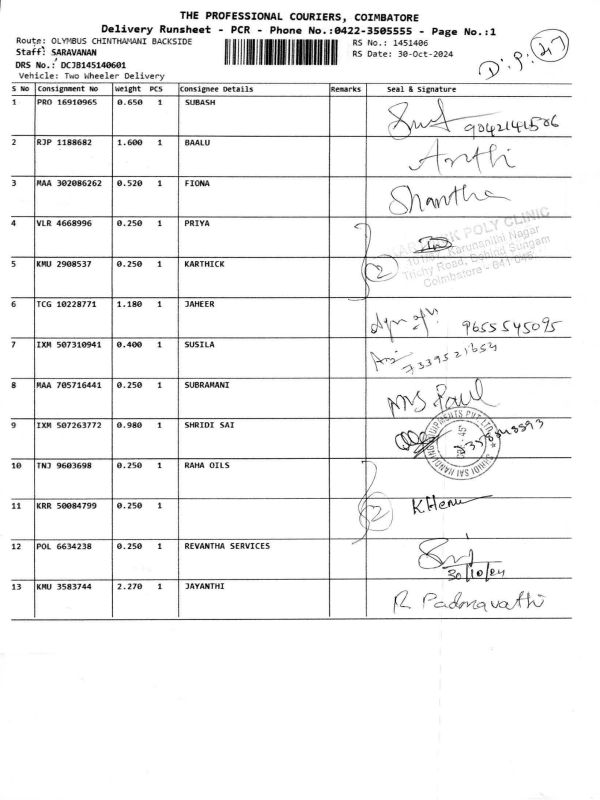 THE PROFESSIONAL COURIERS, COIMBATORE
Delivery Runsheet - PCR - Phone No.:0422-3505555 - Page No.:1
Route: OLYMBUS CHINTHAMANI BACKSIDE
RS No.: 1451406
Staff: SARAVANAN
RS Date: 30-Oct-2024
DRS No.: DCJB145140601
Vehicle: Two Wheeler Delivery
S No Consignment No Weight PCS Consignee Details Remarks Seal & Signature
1 PRO 16910965 0.650 1 SUBASH
9042141506
2 RJP 1188682 1.600 1 BAALU Arthi
3 MAA 302086262 0.520 1 FIONA Shantha
4 VLR 4668996 0.250 1 PRIYA
POLY CLINIC
Karunanithi Nagar
5 KMU 2908537 0.250 1 KARTHICK 2
Trichy Road, Behind Sungam
Coimbatore - 641 045
6 TCG 10228771 1.180 1 JAHEER 9655545095
7 IXM 507310941 0.400 1 SUSILA 7339521654
8 MAA 705716441 0.250 1 SUBRAMANI Paul
9 IXM 507263772 0.980 1 SHRIDI SAI
10 TNJ 9603698 0.250 1 RAHA OILS
11 KRR 50084799 0.250 1 2 K Hema
12 POL 6634238 0.250 1 REVANTHA SERVICES
30/10/24
13 KMU 3583744 2.270 1 JAYANTHI R Padmavathi